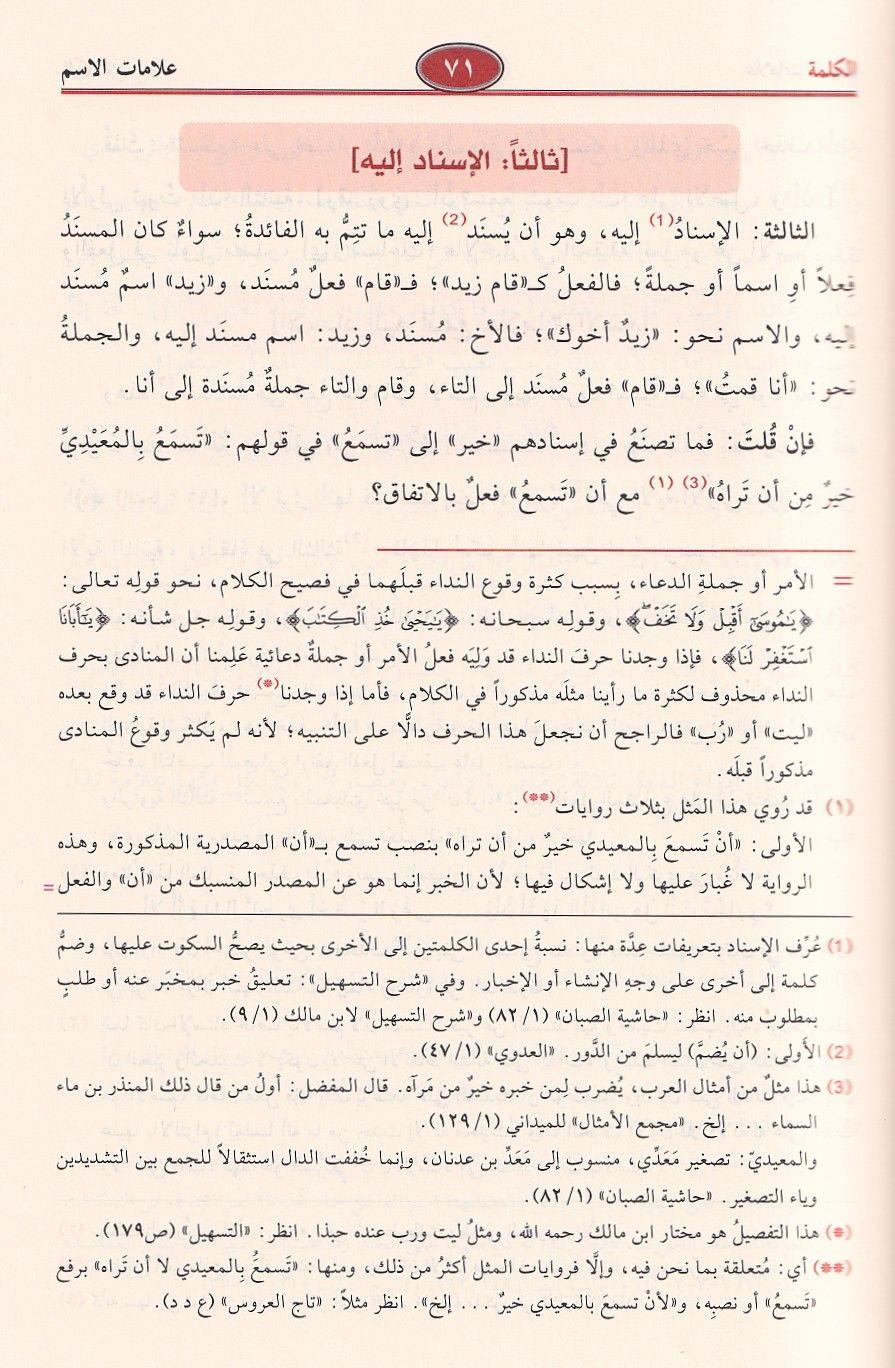 الكلمة ٧١ علامات الاسم
[ثالثاً: الإسناد إليه]
الثالثة: الإسنادُ(1) إليه، وهو أن يُسنَد(2) إليه ما تتِمُّ به الفائدةُ؛ سواءٌ كان المسنَدُ
فِعلاً أوِ اسماً أو جملةً؛ فالفعلُ كـ«قام زيد»؛ فـ«قام» فعلٌ مُسنَد، و«زيد» اسمٌ مُسنَد
إليه، والاسم نحو: «زيدٌ أخوك»؛ فالأخ: مُسنَد، وزيد: اسم مسنَد إليه، والجملةُ
نحو: «أنا قمتُ»؛ فـ«قام» فعلٌ مُسنَد إلى التاء، وقام والتاء جملةٌ مُسنَدة إلى أنا.
فإنْ قُلتَ: فما تصنَعُ في إسنادهم «خير» إلى «تسمَعُ» في قولهم: «تَسمَعُ بِالمُعَيْدِيِّ
خيرٌ مِن أن تَراهُ»(3) (١) مع أن «تَسمعُ» فعلٌ بالاتفاق؟
= الأمر أو جملةِ الدعاء، بِسبب كثرة وقوع النداء قبلَهما في فصيح الكلام، نحو قولِه تعالى:
﴿يَٰمُوسَىٰٓ أَقۡبِلۡ وَلَا تَخَفۡۖ﴾، وقولِه سبحانه: ﴿يَٰيَحۡيَىٰ خُذِ ٱلۡكِتَٰبَ﴾، وقولِه جل شأنه: ﴿يَٰٓأَبَانَا
ٱسۡتَغۡفِرۡ لَنَا﴾، فإذا وجدنا حرفَ النداء قد وَلِيَه فعلُ الأمر أو جملةٌ دعائية عَلِمنا أن المنادى بحرف
النداء محذوف لكثرة ما رأينا مثلَه مذكوراً في الكلام، فأما إذا وجدنا(*) حرفَ النداء قد وقع بعده
«ليت» أو «رُب» فالراجح أن نجعلَ هذا الحرف دالًّا على التنبيه؛ لأنه لم يَكثر وقوعُ المنادى
مذكوراً قبلَه.
(١) قد رُوي هذا المَثل بثلاث روايات(**):
الأولى: «أنْ تَسمعَ بِالمعيدي خيرٌ من أن تراه» بنصب تسمع بـ«أن» المصدرية المذكورة، وهذه
الرواية لا غُبارَ عليها ولا إشكال فيها؛ لأن الخبر إنما هو عن المصدر المنسبك من «أن» والفعل =
(1) عُرِّف الإسناد بتعريفات عِدَّة منها: نسبةُ إحدى الكلمتين إلى الأخرى بحيث يصحُّ السكوت عليها، وضمُّ
كلمة إلى أخرى على وجهِ الإنشاء أو الإخبار. وفي «شرح التسهيل»: تعليقُ خبر بمخبَر عنه أو طلبٍ
بمطلوب منه. انظر: «حاشية الصبان» (٨٢/١) و«شرح التسهيل» لابن مالك (٩/١).
(2) الأَولى: (أن يُضمَّ) ليسلمَ من الدَّور. «العدوي» (٤٧/١).
(3) هذا مثلٌ من أمثال العرب، يُضرب لِمن خبره خيرٌ من مَرآه. قال المفضل: أولُ من قال ذلك المنذر بن ماء
السماء ... إلخ. «مجمع الأمثال» للميداني (١٢٩/١).
والمعيديّ: تصغير مَعَدِّي، منسوب إلى مَعَدِّ بن عدنان، وإنما خُففت الدال استثقالاً للجمع بين التشديدين
وياء التصغير. «حاشية الصبان» (٨٢/١).
(*) هذا التفصيلُ هو مختار ابن مالك رحمه الله، ومثلُ ليت ورب عنده حبذا. انظر: «التسهيل» (ص١٧٩).
(**) أي: مُتعلقة بما نحن فيه، وإلَّا فروايات المثل أكثرُ من ذلك، ومنها: «تَسمعُ بِالمعيدي لا أن تَراه» برفع
«تَسمعُ» أو نصبِه، و«لأنْ تسمعَ بالمعيدي خيرٌ ... إلخ». انظر مثلاً: «تاج العروس» (ع د د).